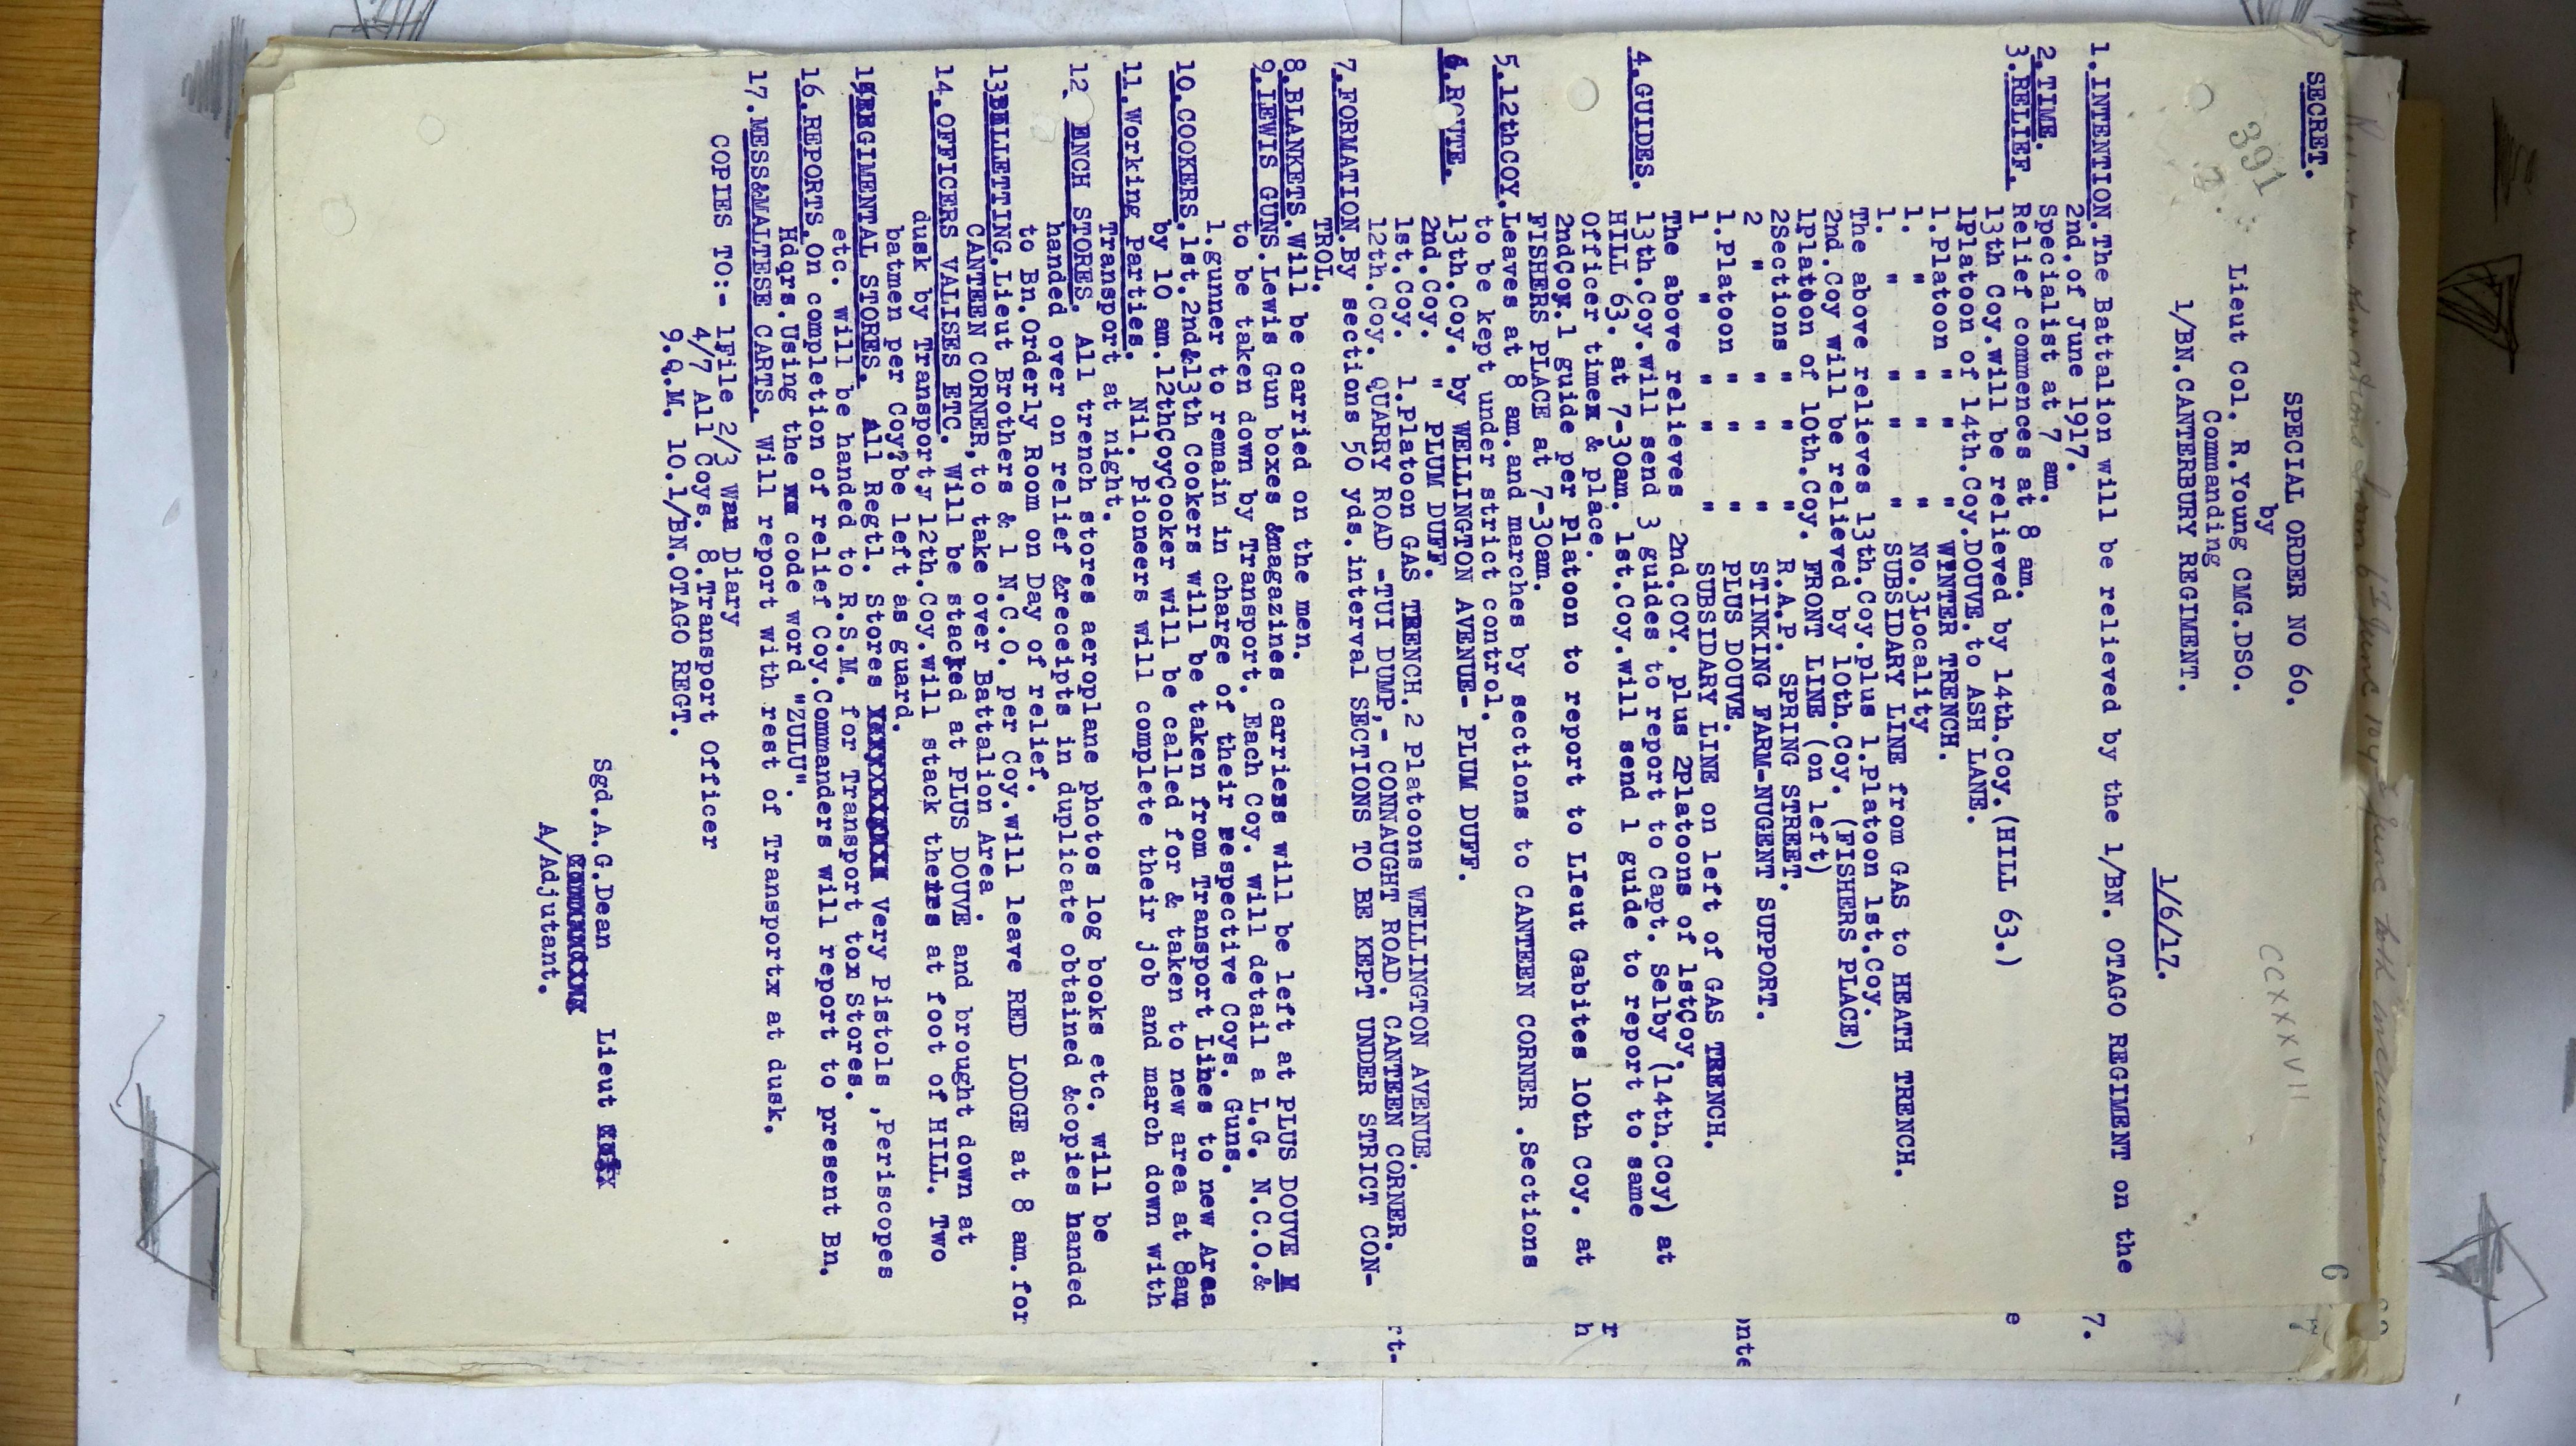 SECRET.
SPECIAL ORDER NO 60.
by
Lieut Col. R.Young CMG.DSO.
Commanding
1/BN.CANTERBURY REGIMENT.
391
CCXXVII
6
7
1/6/17.
1.INTENTION.The Battalion will be relieved by the 1/BN. OTAGO REGIMENT on the
2nd.of June 1917.
2.TIME. Specialist at 7 am.
3.RELIEF. Relief commences at 8 am.
13th Coy.will be relieved by 14th.Coy.(HILL 63.)
1Platoon of 14th.Coy.DOUVE.to ASH LANE.
1.Platoon " " " WINTER TRENCH.
1. " " " " No.3Locality
1. " " " " SUBSIDARY LINE from GAS to HEATH TRENCH.
The above relieves 13th.Coy.plus 1.Platoon 1st.Coy.
2nd.Coy will be relieved by 10th.Coy. (FISHERS PLACE)
1Platoon of 10th.Coy. FRONT LINE (on left)
2Sections " " " R.A.P. SPRING STREET.
2 " " " " STINKING FARM-NUGENT SUPPORT.
1.Platoon " " " PLUS DOUVE.
1 " " " " SUBSIDARY LINE on left of GAS TRENCH.
The above relieves 2nd.COY. plus 2Platoons of 1stCoy.
4.GUIDES. 13th.Coy.will send 3 guides to report to Capt. Selby (14th.Coy) at
HILL 63. at 7-30am. 1st.Coy.will send 1 guide to report to same
Officer timex & place.
2ndCoy.1 guide per Platoon to report to LIeut Gabites 10th Coy. at
FISHERS PLACE at 7-30am.
5.12thCOY.Leaves at 8 am.and marches by sections to CANTEEN CORNER .Sections
to be kept under strict control.
6.ROUTE. 13th.Coy. by WELLINGTON AVENUE- PLUM DUFF.
2nd.Coy. " PLUM DUFF.
1st.Coy. 1.Platoon GAS TRENCH.2 Platoons WELLINGTON AVENUE.
12th.Coy. QUARRY ROAD -TUI DUMP,- CONNAUGHT ROAD. CANTEEN CORNER.
7.FORMATION.By sections 50 yds.interval SECTIONS TO BE KEPT UNDER STRICT CON-
TROL.
8.BLANKETS.Will be carried on the men.
9.LEWIS GUNS.Lewis Gun boxes &magazines carriess will be left at PLUS DOUVE
to be taken down by Transport. Each Coy. will detail a L.G. N.C.O.&
1.gunner to remain in charge of their respective Coys. Guns.
10.COOKERS.1st.2nd&13th Cookers will be taken from Transport Lines to new Area
by 10 am.12thCoyCocker will be called for & taken to new area at 8am
11.Working Parties. Nil. Pioneers will complete their job and march down with
Transport at night.
12 ENCH STORES. All trench stores aeroplane photos log books etc. will be
handed over on relief &receipts in duplicate obtained &copies handed
to Bn.Orderly Room on Day of relief.
13BILLETTING.Lieut Brothers & 1 N.C.O. per Coy.will leave RED LODGE at 8 am.for
CANTEEN CORNER,to take over Battalion Area .
14.OFFICERS VALISES ETC. Will be stacked at PLUS DOUVE and brought down at
dusk by Transport, 12th.Coy.will stack theirs at foot of HILL. Two
batmen per Coy?be left as guard.
15REGIMENTAL STORES. All Regtl. Stores Very Pistols ,Periscopes
etc. will be handed to R.S.M. for Transport tox Stores.
16.REPORTS.On completion of relief Coy.Commanders will report to present Bn.
Hdqrs.Using the code word "ZULU".
17.MESS&MALTESE CARTS. Will report with rest of Transportx at dusk.
COPIES TO:- 1File 2/3 war Diary
4/7 All Coys. 8.Transport Officer
9.Q.M. 10.1/BN.OTAGO REGT.
Sgd.A.G.Dean Lieut
A/Adjutant.
7.
e
onte
r
h
rt-